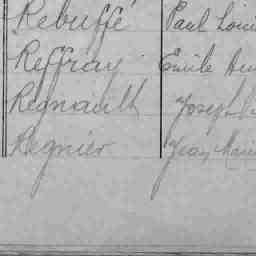 Rebuffé Paul Loui
Reffray Emile
Regnault Joseph
Regnier Jean Marie